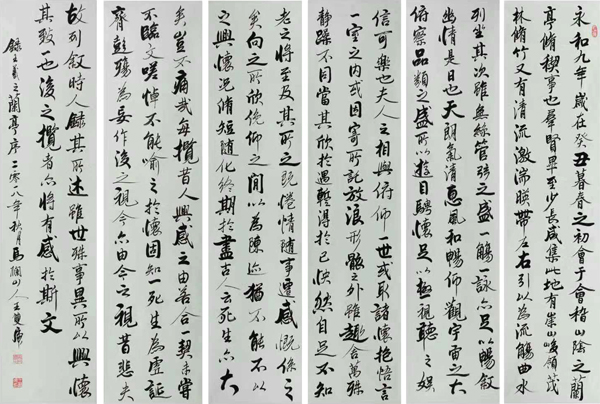 永和九年歲在癸丑暮春之初會于會稽山陰之蘭
亭脩稧事也羣賢畢至少長咸集此地有崇山峻領茂
林脩竹又有清流激湍暎帶左右引以為流觴曲水
列坐其次雖無絲管弦之盛一觴一詠亦足以暢敘
幽情是日也天朗氣清惠風和暢仰觀宇宙之大
俯察品類之盛所以遊目騁懷足以極視聽之娛
信可樂也夫人之相與俯仰一世或取諸懷抱悟言
一室之内或因寄所託放浪形骸之外雖趣舍萬殊
靜躁不同當其欣於遇暫得於己怏然自足不知
老之將至及其所之既惓情隨事遷感慨係之
矣向之所欣俛仰之間以為陳迹猶不能不以
之興懷況脩短隨化終期於盡古人云死生亦大
矣豈不痛哉每攬昔人興感之由若合一契未嘗
不臨文嗟悼不能喻之於懷固知一死生為虛誕
齊彭殤為妄作後之視今亦由今之視昔悲夫
故列敘時人錄其所述雖世殊事異所以興懷
其致一也後之攬者亦將有感於斯文
錄王羲之蘭亭序二零一八年秋月馬山人王雙